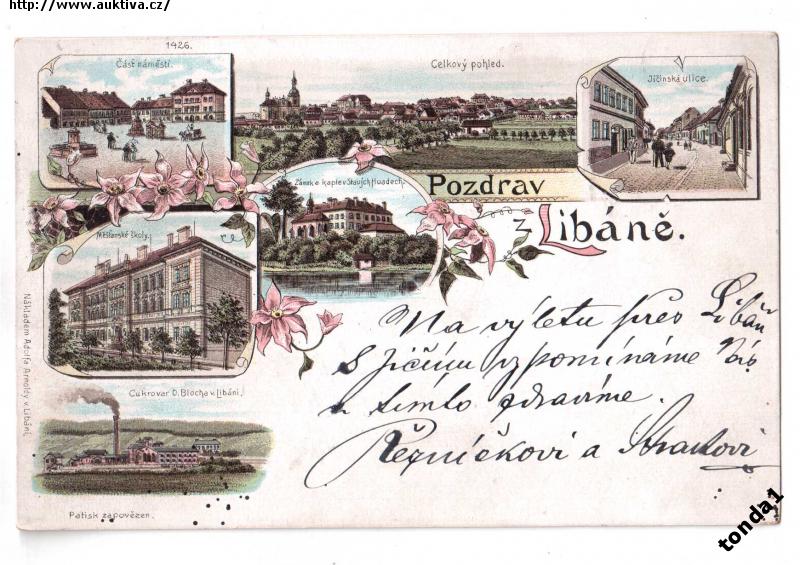 http://www.auktiva.cz/
1426.
Část náměstí.
Celkový pohled.
Jičínská ulice.
Zámek a kaple v Starých Hradech.
Pozdrav
z Libáně.
Měšťanské školy.
Na výletu přes Libáň
s Jičínu vzpomínáme
tímto zdravíme.
Řezníčkovi a
Cukrovar O. Blocha v Libáni.
Nákladem Adolfa Arnoldy v Libáni.
Patisk zapovězen.
tonda1